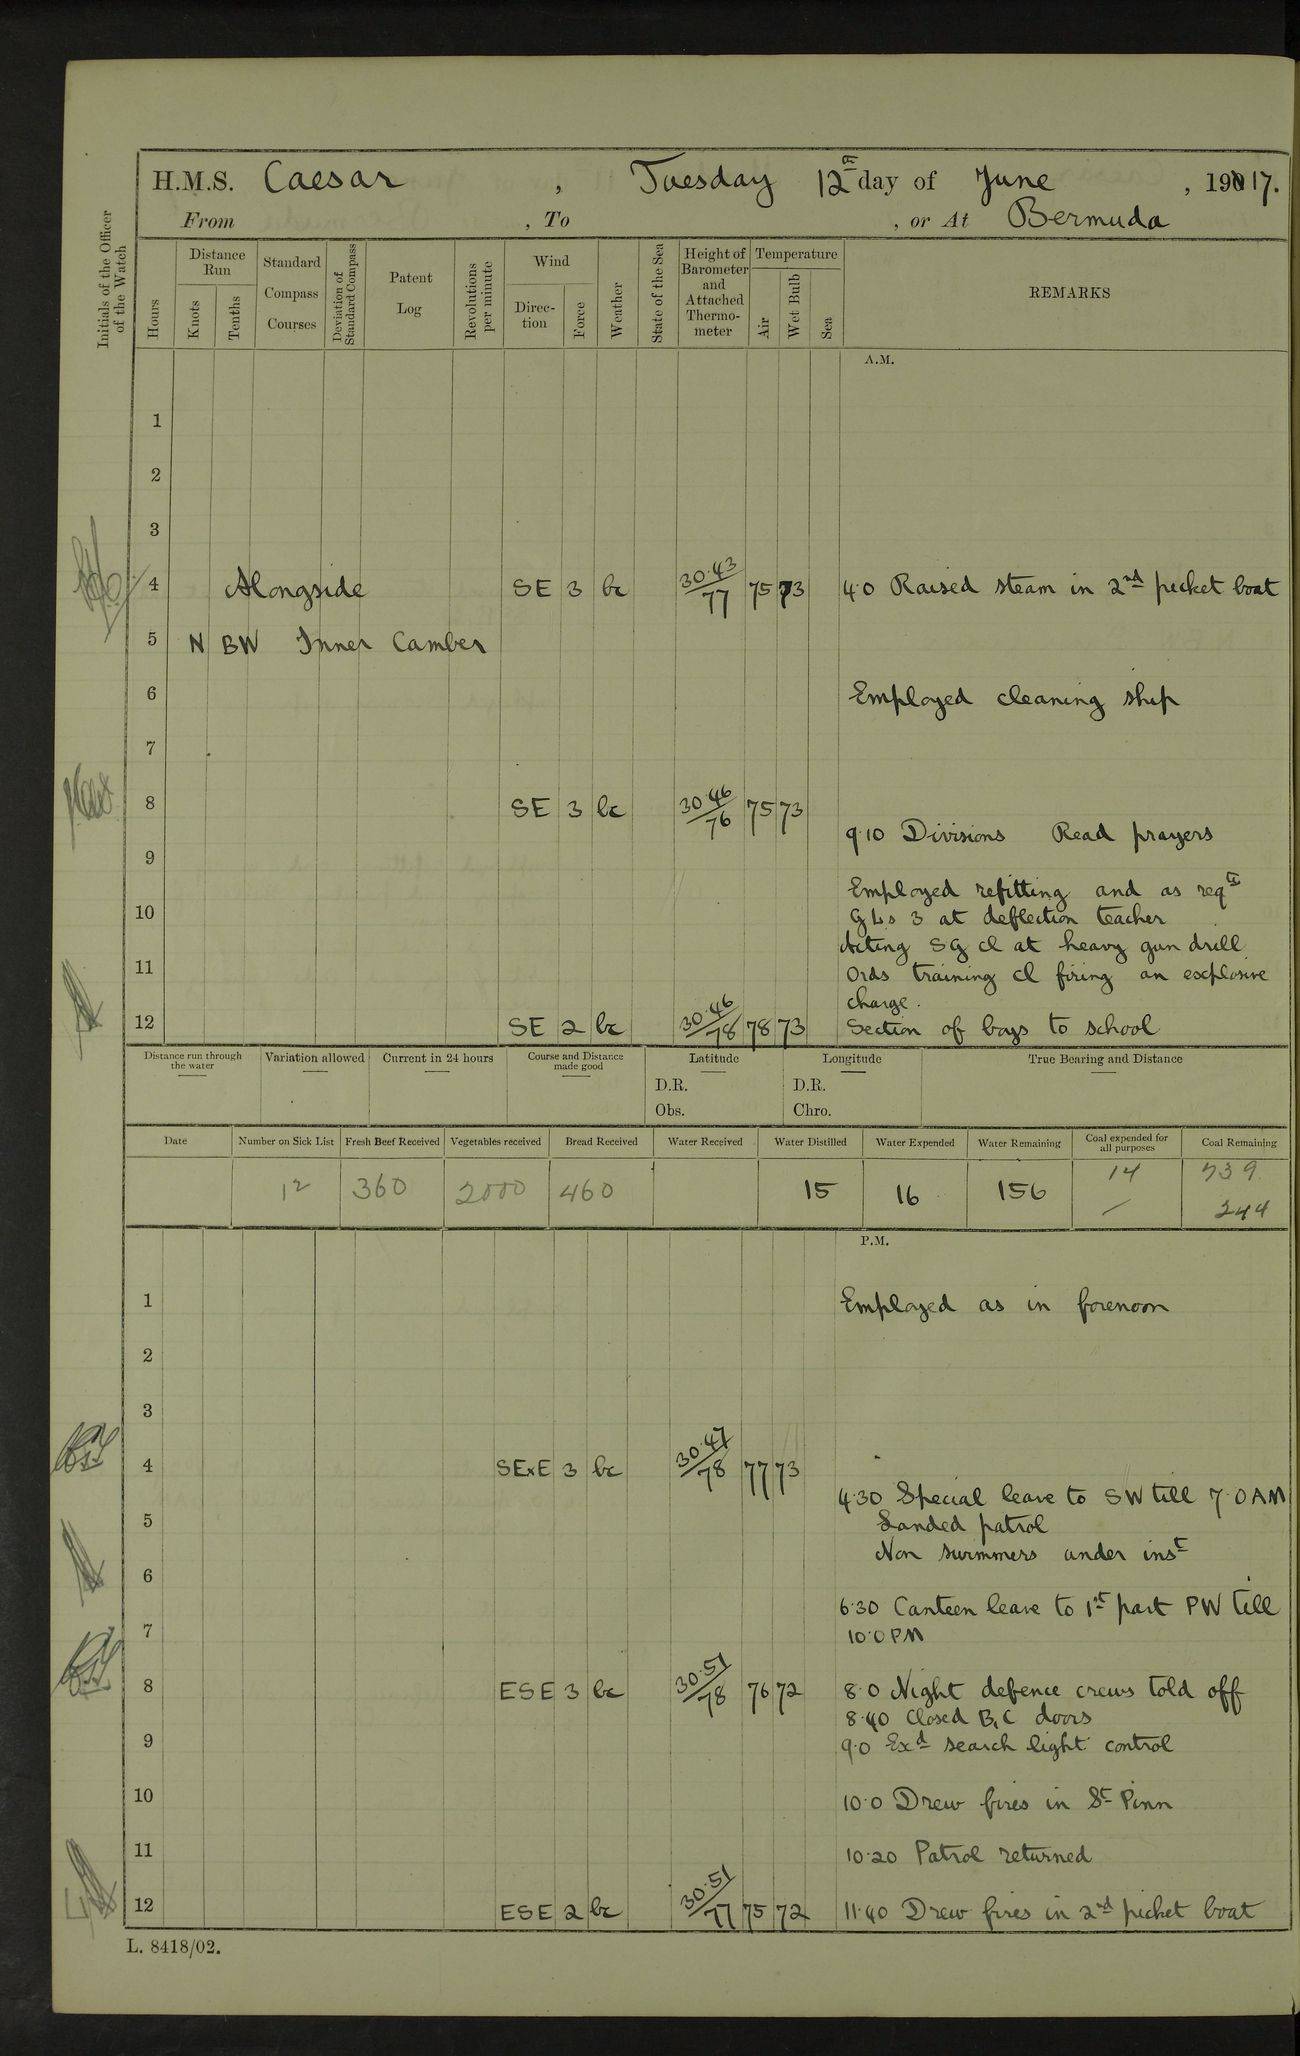 H.M.S. Caesar, Tuesday 12th day of June, 1917.
From , To , or At Bermuda
Initials of the Officer of the Watch
Hours
Distance Run
Knots
Tenths
Standard Compass Courses
Deviation of Standard Compass
Patent Log
Revolutions per minute
Wind
Direction
Force
Weather
State of the Sea
Height of Barometer and Attached Thermometer
Temperature
Air
Wet Bulb
Sea
REMARKS
A.M.
1
2
3
4 Alongside SE 3 bc 30.43/77 75 73 4.0 Raised steam in 2nd picket boat
5 N BW Inner Camber
6 Employed cleaning ship
7
8 SE 3 bc 30.46/76 75 73
9.10 Divisions Read prayers
9
Employed refitting and as reqd
10 GLs 3 at deflection teacher
Acting SG cl at heavy gun drill
11 Ords training cl firing an explosive
charge.
12 SE 2 bc 30.46/78 78 73 Section of boys to school
Distance run through the water
Variation allowed
Current in 24 hours
Course and Distance made good
Latitude
D.R.
Obs.
Longitude
D.R.
Chro.
True Bearing and Distance
Date Number on Sick List Fresh Beef Received Vegetables received Bread Received Water Received Water Distilled Water Expended Water Remaining Coal expended for all purposes Coal Remaining
12 360 2000 460 15 16 156 14 739
/ 244
P.M.
1 Employed as in forenoon
2
3
4 SExE 3 bc 30.47/78 77 73
4.30 Special leave to SW till 7.0 AM
5 Landed patrol
Non swimmers under inst
6
6.30 Canteen leave to 1st part PW till
7 10.0 PM
8 ESE 3 bc 30.51/78 76 72 8.0 Night defence crews told off
8.40 Closed B, C doors
9 9.0 Exd search light control
10 10.0 Drew fires in St Pinn
11 10.20 Patrol returned
12 ESE 2 bc 30.51/77 75 72 11.40 Drew fires in 2nd picket boat
L. 8418/02.